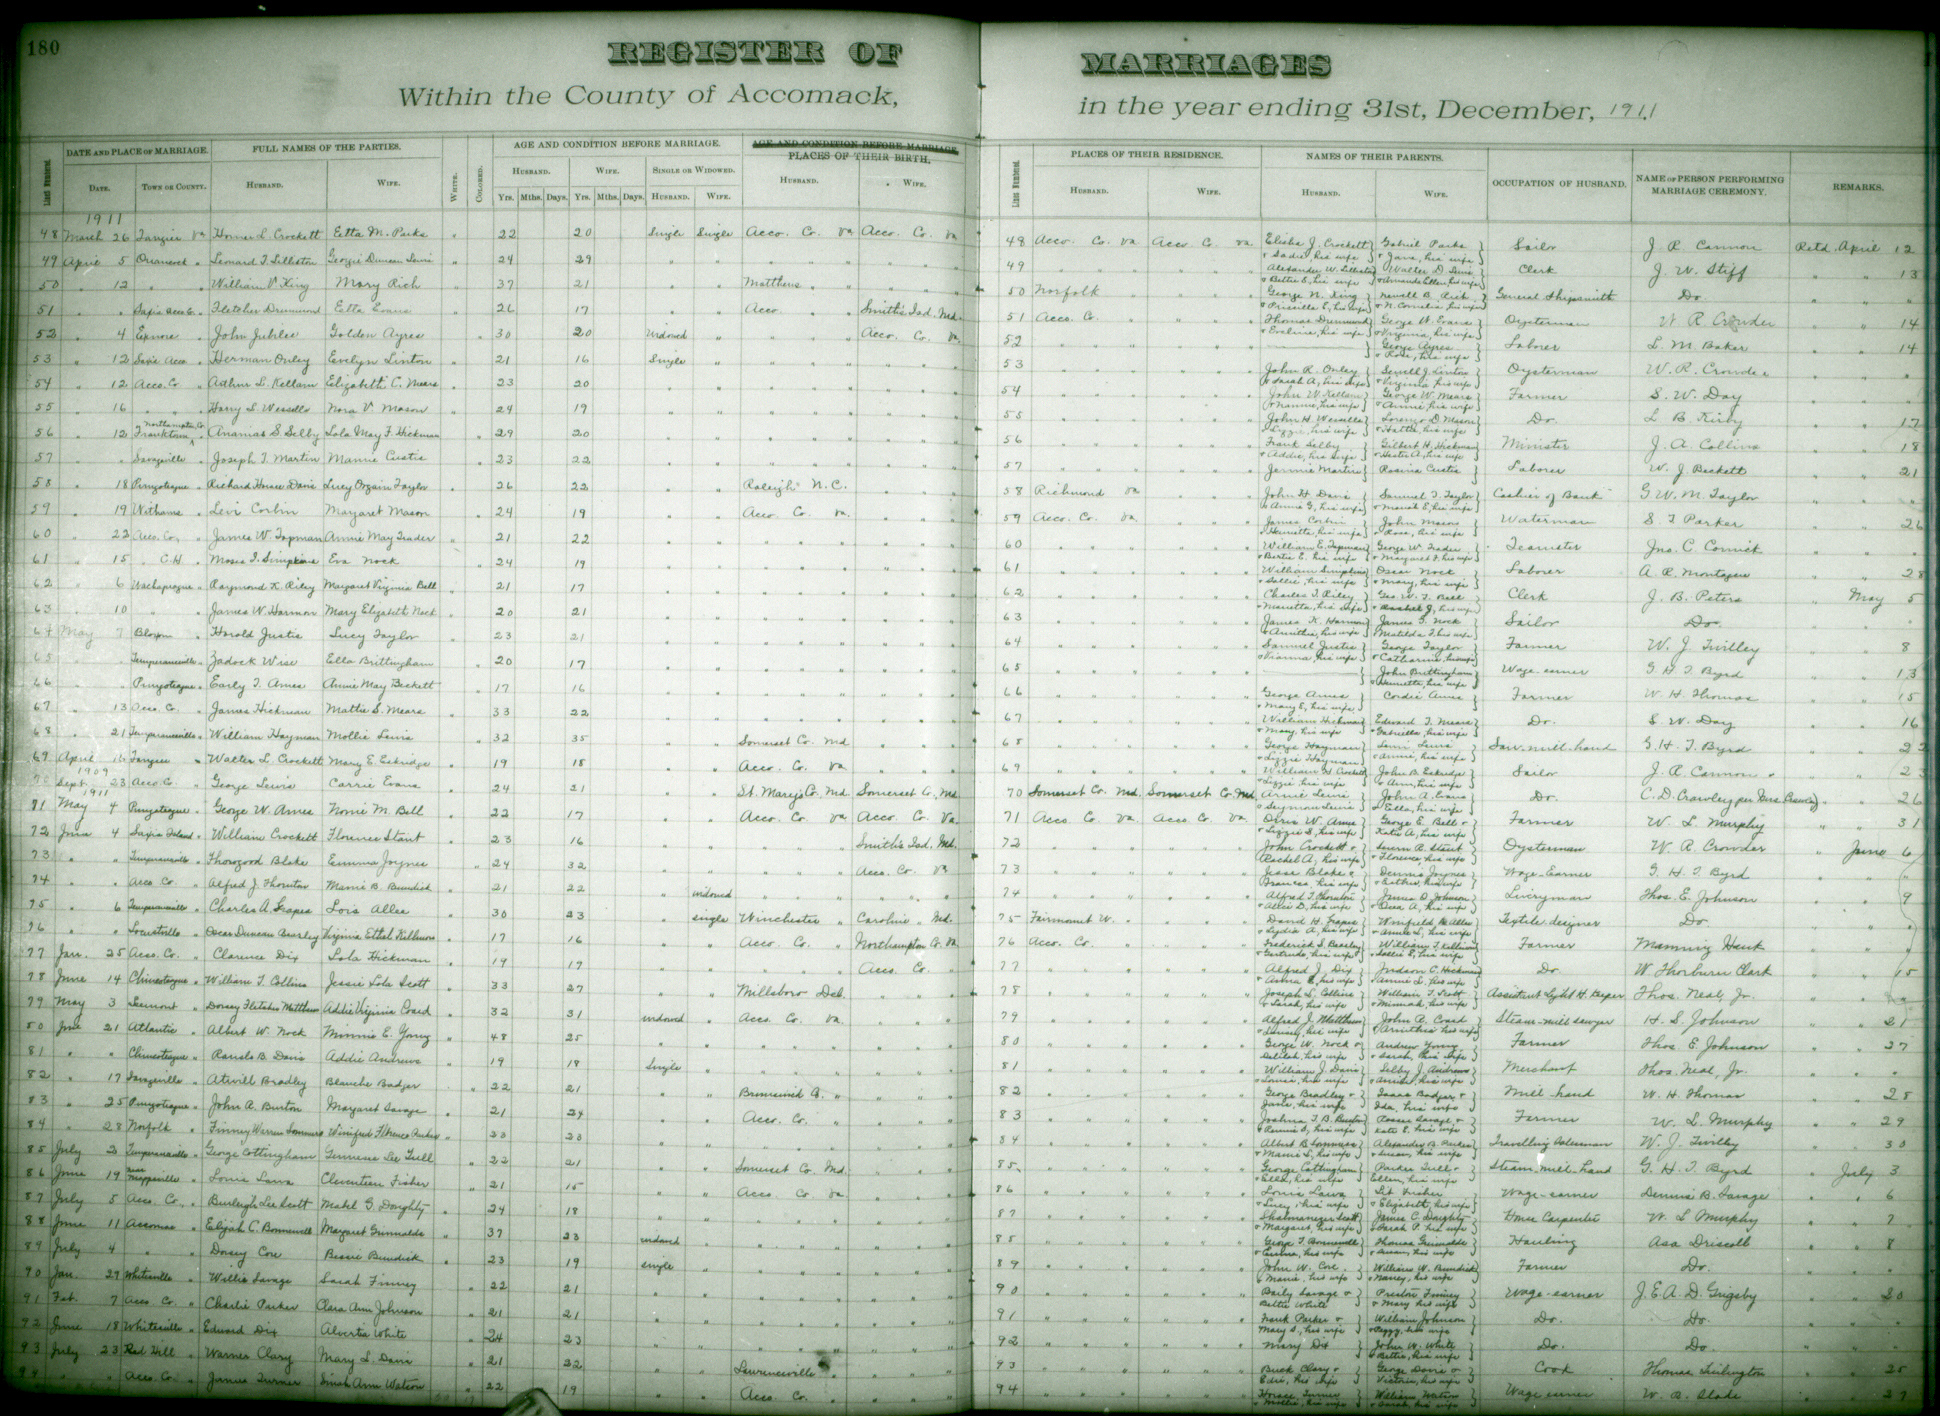 180
REGISTER OF MARRIAGES
Within the County of Accomack, in the year ending 31st, December, 1911
Lines Numbered. DATE AND PLACE OF MARRIAGE. FULL NAMES OF THE PARTIES. WHITE. COLORED. AGE AND CONDITION BEFORE MARRIAGE. AGE AND CONDITION BEFORE MARRIAGE.
PLACES OF THEIR BIRTH.
DATE. TOWN OR COUNTY. HUSBAND. WIFE. HUSBAND. WIFE. SINGLE OR WIDOWED. HUSBAND. WIFE.
Yrs. Mths. Days. Yrs. Mths. Days. HUSBAND. WIFE.
1911
48 March 26 Tangier Va Homer L. Crockett Etta M. Parks " 22 20 Single Single Acco. Co. Va Acco. Co. Va
49 April 5 Onancock " Leonard T. Lilliston Georgie Duncan Lewis " 24 29 " " " " " "
50 " 12 " " William V. King Mary Rich " 37 21 " " Matthews " " " "
51 " " Saxis Acco Co. " Fletcher Drummond Etta Evans " 26 17 " " Acco. " " Smith's Isd. Md.
52 " 4 Exmore " John Jubilee Golden Ayres " 30 20 Widowed " " " " Acco. Co. Va.
53 " 12 Saxis Acco. " Herman Onley Evelyn Linton " 21 16 Single " " " " " " "
54 " 12 Acco. Co " Arthur L. Kellam Elizabeth C. Mears " 23 20
55 " 16 " " Harry S. Wessells Nora V. Mason " 24 19
56 " 12 Northampton Co Franktown " Ananias S. Selby Lola May F. Hickman " 29 20
57 " " Savageville " Joseph T. Martin Mamie Custis " 23 22
58 " 18 Pungoteague " Richard House Davis Lucy Orgain Taylor " 26 22 " " Raleigh N.C.
59 " 19 Withams " Levi Corbin Margaret Mason " 24 19 " " Acco. Co. Va.
60 " 22 Acco. Co. " James W. Tapman Annie May Trader " 21 22
61 " 15 C.H. " Moses T. Simpkins Eva Nock " 24 19
62 " 6 Wachapreague " Raymond K. Riley Margaret Virginia Bell " 21 17
63 " 10 " " James W. Harmon Mary Elizabeth Nock " 20 21
64 May 7 Bloxom " Harold Justis Lucy Taylor " 23 21
65 " " Temperanceville " Zadock Wise Ella Brittingham " 20 17
66 " " Pungoteague " Early T. Ames Annie May Beckett " 17 16
67 " 13 Acco. Co. " James Hickman Mattie S. Mears " 33 22
68 " 21 Temperanceville " William Hayman Mollie Lewis " 32 35 " " Somerset Co. Md.
69 April Tangier " Walter L. Crockett Mary E. Eskridge " 19 18 " " Acco. Co. Va.
1909
70 Sept. 23 Acco. Co. " George Lewis Carrie Evans " 24 21 " " St. Marys Co. Md. Somerset Co. Md
1911
71 May 4 Pungoteague " George W. Ames Nonie M. Bell " 22 17 " " Acco. Co. Va Acco. Co. Va.
72 June 4 Saxis Island " William Crockett Florence Stant " 23 16 " " " " " Smith's Isd. Md.
73 " " Temperanceville " Thorogood Blake Emma Joynes " 24 32 " " " " " Acco. Co Va
74 " " Acco Co. " Alfred J. Thornton Mamie B. Bundick " 21 22 " widowed
75 " 6 Temperanceville " Charles A. Grapes Lois Allen " 30 23 " single Winchester " Caroline " Md.
76 " " Locustville " Oscar Duncan Beasley Virginia Ethel Killmon " 17 16 " " Acco. Co. " Northampton Co. Va
77 Jan. 25 Acco. Co. " Clarence Dix Lola Hickman " 19 17 " " " " " Acco. Co. "
78 June 14 Chincoteague " William T. Collins Jessie Lola Scott " 33 27 " " Millsboro Del.
79 May 3 Leemont " Dorsey Fletcher Matthews Addie Virginia Coard " 32 31 widowed " Acco. Co. Va.
80 June 21 Atlantic " Albert W. Nock Minnie E. Young " 48 25
81 " " Chincoteague " Ronald B. Davis Addie Andrews " 19 18 Single
82 " 17 Savageville " Atwill Bradley Blanche Badger " 22 21 " " Brunswick Co. "
83 " 25 Pungoteague " John A. Burton Margaret Savage " 21 24 " " Acco. Co.
84 " 28 Norfolk " Finney Warren Sommers Winifred Florence Parker " 23 23
85 July 2 Temperanceville " George Cottingham Gennevee Lee Tull " 22 21 " " Somerset Co. Md.
86 June 19 near Mappsville " Louis Laws Clementeen Fisher " 21 15 " " Acco. Co. Va.
87 July 5 Acco. Co. " Burleigh Lee Scott Mabel G. Doughty " 24 18
88 June 11 Accomac " Elijah C. Bonnewell Margaret Grinnalds " 37 23 widowed
89 July 4 " " Dorsey Core Bessie Bundick " 23 19 single
90 Jan. 29 Whitesville " Willie Savage Sarah Finney " 22 21
91 Feb. 7 Acco. Co. " Charlie Parker Clara Ann Johnson " 21 21
92 June 18 Whitesville " Edward Dix Alvertia White " 24 23
93 July 23 Red Hill " Warner Clary Mary L. Davis " 21 32 " " Lawrenceville "
94 " " Acco. Co. " James Turner Sinah Ann Watson " 22 19 " " Acco. Co.
Lines Numbered. PLACES OF THEIR RESIDENCE. NAMES OF THEIR PARENTS. OCCUPATION OF HUSBAND. NAME OF PERSON PERFORMING MARRIAGE CEREMONY. REMARKS.
HUSBAND. WIFE. HUSBAND. WIFE.
48 Acco. Co. Va Acco. Co. Va Elisha J. Crockett & Sadie, his wife Gabriel Parks & Jane, his wife Sailor J. R. Cannon Retd. April 12
49 Alexander W. Lilliston & Bettie E, his wife Walter D. Lewis & Amanda Ellen, his wife Clerk J. W. Stiff " " 13
50 Norfolk George N. King & Priscilla E, his wife Newell B. Rich & N. Cornelia his wife General Shipsmith Do. " " "
51 Acco. Co. Thomas Drummond & Evaline, his wife George W. Evans & Virginia, his wife Oysterman W R Crowder " " 14
52 George Ayres & Rose, his wife Laborer L. M. Baker " " 14
53 John R. Onley & Sarah A, his wife Sewell J. Linton & Virginia his wife Oysterman W. R. Crowder " " "
54 John W. Kellam & Nannie, his wife George W. Mears & Annie, his wife Farmer S. W. Day " " "
55 John H. Wessells & Lizzie, his wife Lorenzo D. Mason & Hattie, his wife Do. L B. Kirby " " 17
56 Frank Selby & Addie, his wife Gilbert H. Hickman & Hester A, his wife Minister J. A Collins " " 18
57 Jennie Martin Rosina Custis Laborer W. J. Beckett " " 21
58 Richmond Va John H Davis & Annie G, his wife Samuel T. Taylor & Mariah E, his wife Cashier of Bank G W. M. Taylor " " "
59 Acco. Co. Va. James Corbin & Henrietta, his wife John Mason & Rose, his wife Waterman S. T Parker " " 26
60 William E. Tapman & Bertie E. his wife George W. Trader & Margaret F, his wife Teamster Jno. C. Cornick " " "
61 William Simpkins & Sallie, his wife Oscar Nock & Mary, his wife Laborer A. R. Montague " " 28
62 Charles T. Riley & Marietta, his wife Geo. W. T. Bell Clerk J. B. Peters " May 5
63 James K. Harmon James T. Nock & Matilda F. his wife Sailor Do. " " "
64 Samuel Justis & Vianna, his wife George Taylor & Catharine, his wife Farmer W. J. Twilley " " 8
65 John Brittingham & Henrietta, his wife Wage-earner G. H. T Byrd " " 13
66 George Ames & Mary E, his wife Cordie Ames Farmer W. H. Thomas " " 15
67 William Hickman & Mary, his wife Edward T. Mears & Gabriella, his wife Do. S. W. Day " " 16
68 George Hayman & Lizzie Hayman Levi Lewis & Annie, his wife Saw-mill-hand G. H. T Byrd " " 22
69 William H Crockett & Lizzie, his wife John B. Eskridge & Ann, his wife Sailor J. R. Cannon " " 2
70 Somerset Co. Md. Somerset Co. Md. Arnie Lewis & Seymour Lewis John A. Evans & Ella, his wife Do. C. D. Crawley per Mrs. Crawley " " 26
71 Acco Co. Va. Acco Co. Va. W. Ames & Lizzie S, his wife George E. Bell & Katie A, his wife Farmer W. L. Murphy " " 31
72 John Crockett & Rachel A, his wife Stant & Florence, his wife Oysterman W. R. Crowder " June 6
73 Jesse Blake & Frances, his wife Dennis Joynes & Esther, his wife Wage-Earner G. H. T. Byrd " " "
74 Alfred T. Thornton James D Johnson Liveryman Thos. E. Johnson " " 9
75 Fairmount W. David H. Grapes & Lydia A, his wife Winfield Allen & Annie L, his wife Textile designer Do. " " "
76 Acco. Co. Frederick S. Beasley & Gertrude, his wife William T. Killmon & Sallie E, his wife Farmer Manning Hank " " "
77 Alfred J. Dix Judson C. Hickman & Annie L, his wife Do W Thorburn Clark " " 15
78 Joseph S. Collins & Sarah, his wife William T. Scott & Minnie, his wife Assistant Light H. Keeper Thos. Neal, Jr.
79 Alfred J. Matthews John A. Coard & Arinthia his wife Steam-mill sawyer H. S Johnson " " 21
80 George W. Nock & Delilah, his wife Andrew Young & Sarah, his wife Farmer Thos. E Johnson " " 27
81 William J. Davis & Louisa, his wife Selby J. Andrews Merchant Thos. Neal, Jr. " " "
82 George Bradley & Jane, his wife Isaac Badger & Ida, his wife Mill hand W. H. Thomas " " 28
83 Joshua T. B. Burton Savage & Kate E. his wife Farmer W. L. Murphy " " 29
84 Albert B Sommers & Mamie S, his wife Alexander B. Parker & Susan, his wife Travelling Salesman W. J. Twilley " " 30
85 George Cottingham & Ellen, his wife Parker Tull & Ellen, his wife Steam-mill-hand G. H. T. Byrd " July 3
86 Louis Laws & Lucy, his wife Lit Fisher & Elizabeth, his wife Wage-earner Dennis B. Savage " " 6
87 Shalmaneser Scott & Margaret, his wife James C Doughty & Sarah P. his wife House Carpenter W. L Murphy " " 7
88 George T. Bonnewell & Emma, his wife Thomas Grinnalds & Susan, his wife Hauling Asa Driscoll " " 8
89 John W. Core & Mamie, his wife William W. Bundick & Nancy, his wife Farmer Do. " " "
90 Savage & Bettie White Preston Finney & Mary his wife Wage-earner J. E. A. D. Grigsby " " 20
91 Frank Parker & Mary S., his wife William Johnson & Peggy, his wife Do. Do. " " "
92 Mary Dix John W. White & Bettie, his wife Do. Do. " " "
93 Buck Clary & Edie, his wife George Davis & Victoria, his wife Cook Thomas " " 25
94 Horace Turner & Mollie, his wife William Watson & Sarah, his wife Wage earner W. B. Blake " " 27